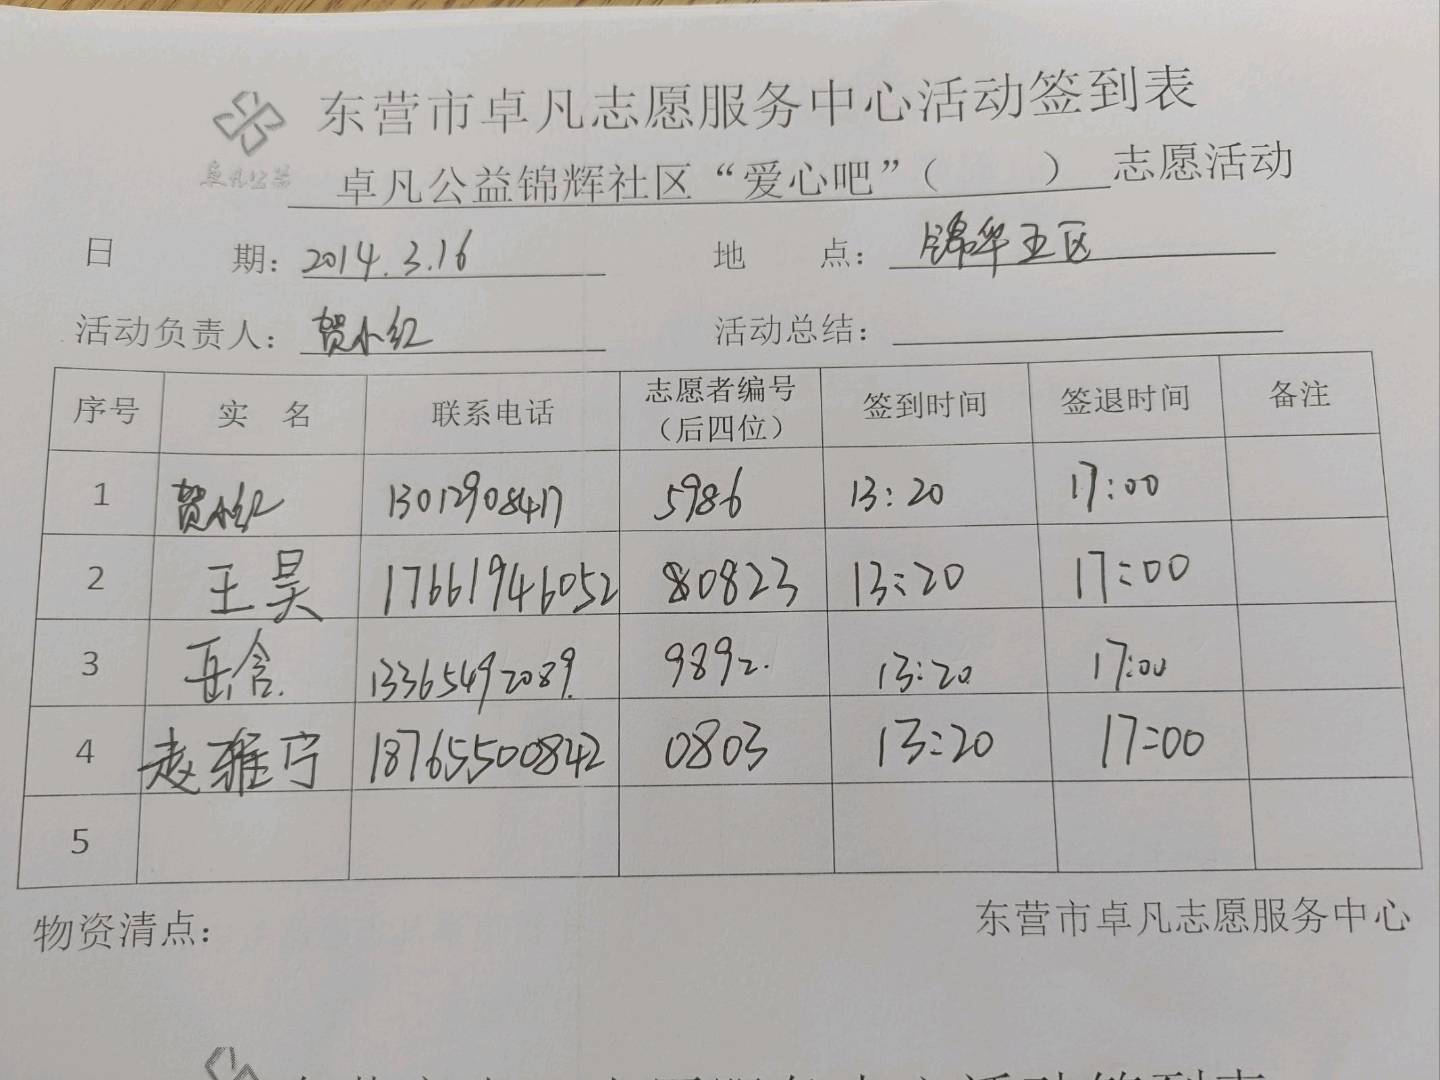 东营市卓凡志愿服务中心活动签到表
卓凡公益
卓凡公益锦辉社区“爱心吧”（ ）志愿活动
日 期：2014.3.16 地 点：锦华五区
活动负责人：贺小红 活动总结：
序号 实 名 联系电话 志愿者编号（后四位） 签到时间 签退时间 备注
1 贺小红 13012908417 5986 13:20 17:00
2 王昊 17661946052 80823 13:20 17:00
3 岳含 13365492089 9892 13:20 17:00
4 赵雅宁 18765500842 0803 13:20 17:00
5
物资清点： 东营市卓凡志愿服务中心